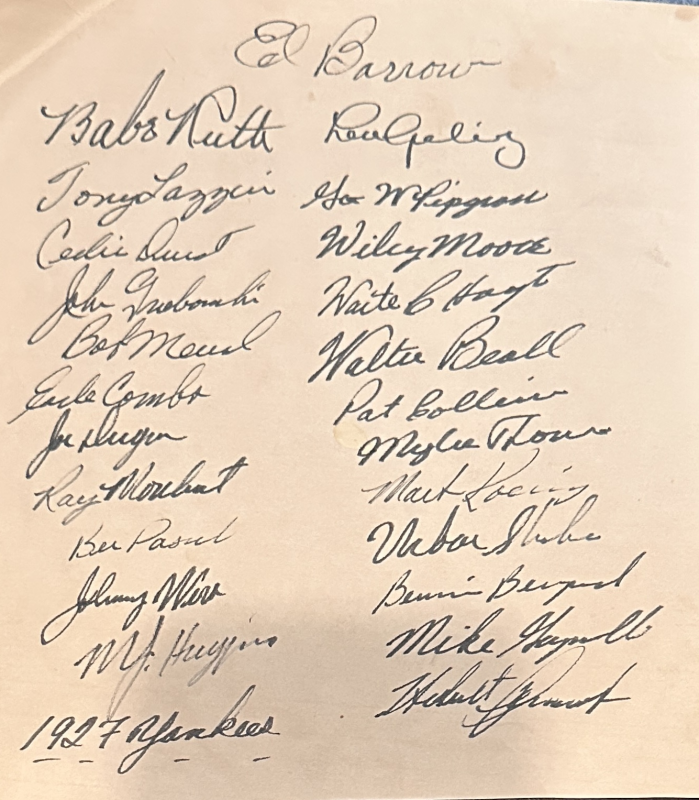 Ed Barrow
Babe Ruth Lou Gehrig
Tony Lazzeri Geo W Pipgras
Cedric Durst Wilcy Moore
John Grabowski Waite C Hoyt
Bob Meusel Walter Beall
Earle Combs Pat Collins
Joe Dugan Myles Thomas
Ray Morehart Mark Koenig
Ben Paschal Urban Shocker
Johnny Wera Bennie Bengough
M.J. Huggins Mike Gazella
1927 Yankees Herbert Pennock